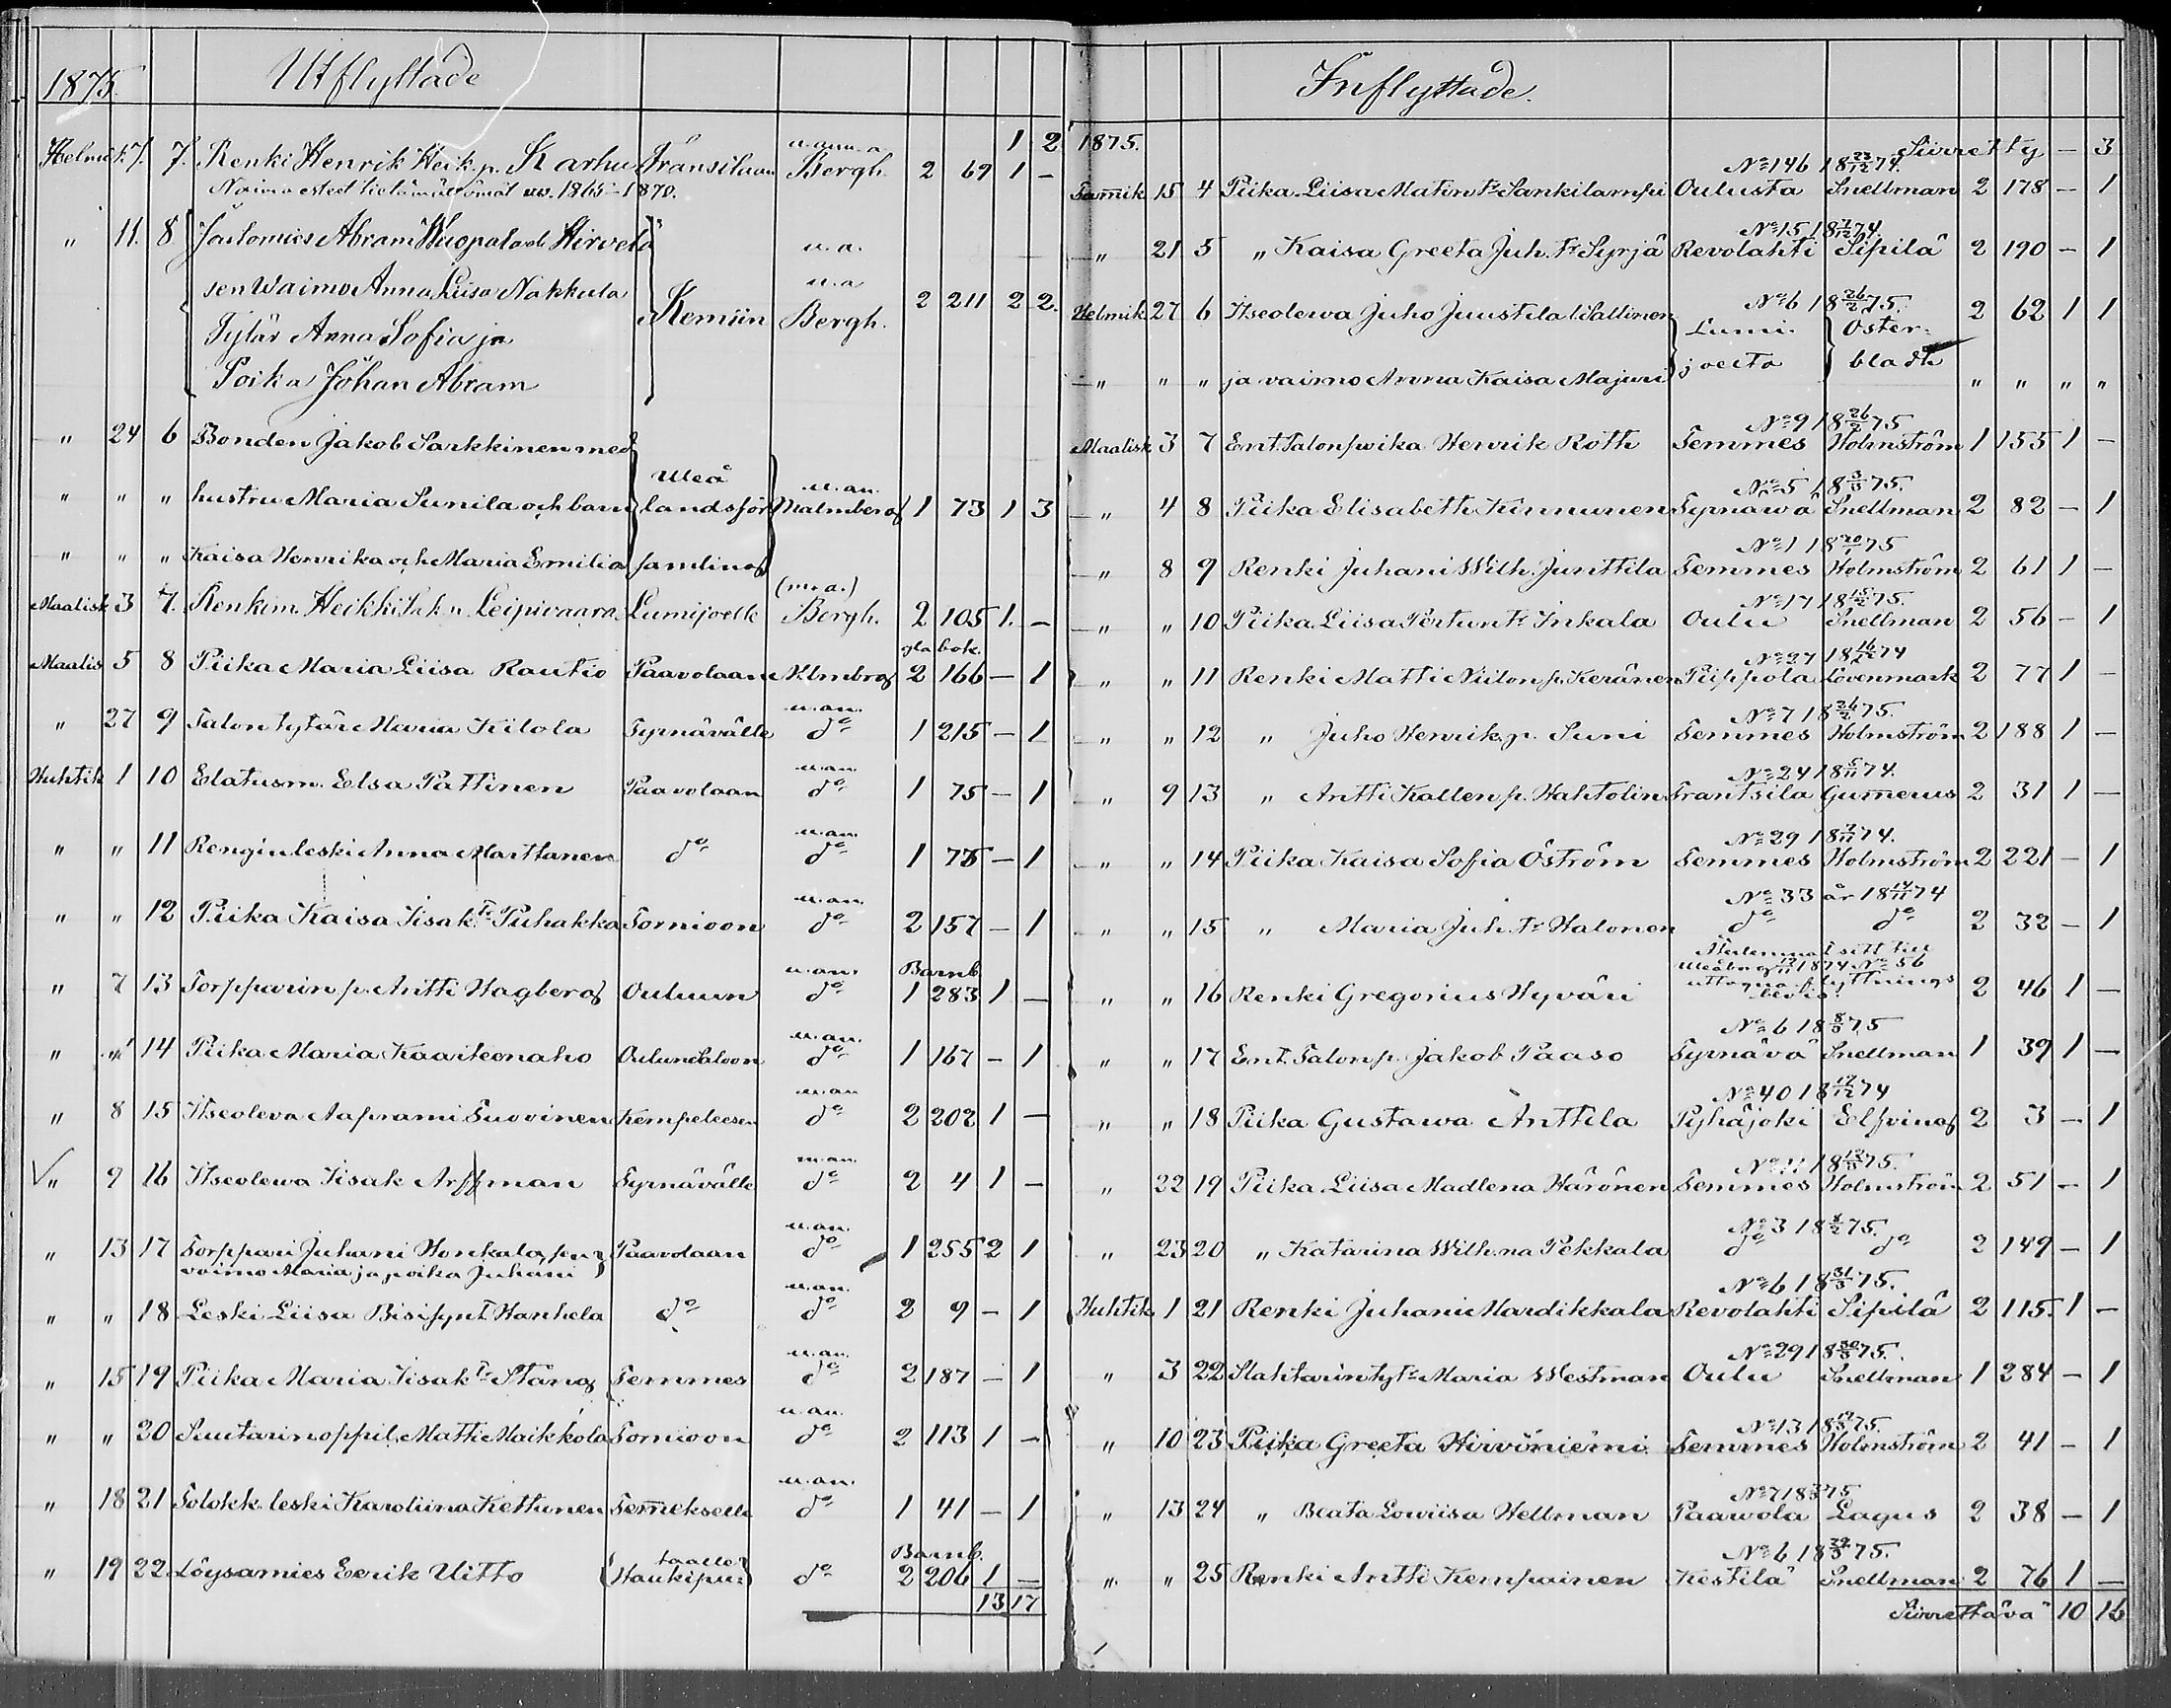 1875. Utflyttade
1 2
Helmik. 7. 7. Renki Henrik Heik. p. Karhu Fransilaan u.a. Bergh. 2 69 1 -
1865-1870.
" 11. 8 Abram Wuopala eli Hirvelä u.a.
sen Waimo Anna Liisa Nakkula u.a
Kemiin Bergh. 2 211 2 2.
Tytär Anna Sofia ja
Poika Johan Abram
" 24 6 Bonden Jakob Sarkkinen med
" " " hustru Maria Sunila och barn Uleå landsför u.an. Malmberg 1 73 1 3
" " " Kaisa Henrika och Maria Emilia samling
Maalisk 3 7. Renkim. Heikki Leipivaara Lumijoelle (m.a.) Bergh. 2 105 1. -
Maalis 5 8 Piika Maria Liisa Rautio Paavolaan Mlmbrg gla bok. 2 166 - 1
" 27 9 Talon tytär Maria Kilola Tyrnävälle u.an. do 1 215 - 1
Huhtik 1 10 Elatusm. Elsa Pattinen Paavolaan u.an. do 1 75 - 1
" " 11 Rengin leski Anna Marttanen do u.an. do 1 75 - 1
" " 12 Piika Kaisa Iisak Tr Puhakka Tornioon u.an. do 2 157 - 1
" 7 13 Torpparin p. Antti Hagberg Ouluun u.an. do Barnb. 1 283 1 -
" " 14 Piika Maria Kaarteenaho Oulunsaloon u.an. do 1 167 - 1
" 8 15 Itseoleva Aaprami Suovinen Kempeleesen u.an do 2 202 1 -
" 9 16 Itseolewa Iisak Arffman Tyrnävälle u.an. do 2 4 1 -
" 13 17 Torppari Juhani Honkala, sen Paavolaan u.an. do 1 255 2 1
vaimo Maria ja poika Juhani
" " 18 Leski Liisa Hanhela do u.an. do 2 9 - 1
" 15 19 Piika Maria Iisak Tr Stång Temmes u.an. do 2 187 - 1
" " 20 Suutarinoppil. Matti Maikkola Tornioon u.an. do 2 113 1 -
" 18 21 Solokk. leski Karoliina Kettunen Temekselle u.an. do 1 41 - 1
" 19 22 Löysämies Eerik Uitto Haukipu: taalle do Barnb. 2 206 1 -
13 17
Inflyttade.
1875. Siirretty - 3
No 146 18 23/12 74.
Tamik 15 4 Piika Liisa Matin tr Sankilampi Oulusta Snellman 2 178 - 1
No 15 18 7/12 74.
" 21 5 " Kaisa Greeta Juh. tr Syrjä Revolahti Sipilä 2 190 - 1
No 6 18 26/2 75.
Helmik 27 6 Itseolewa Juho Juustila Lumi- Öster- 2 62 1 1
" " " ja vaimo Anna Kaisa Majuri joelta bladh " " " "
No 9 18 26/2 75
Maalisk 3 7 Ent. Talonpoika Henrik Roth Temmes Holmström 1 155 1 -
No 5 18 3/3 75.
" 4 8 Piika Elisabeth Kinnunen Tyrnäwä Snellman 2 82 - 1
No 1 18 20/1 75
" 8 9 Renki Juhani Wilh. Junttila Temmes Holmström 2 61 1 -
No 17 18 15/2 75.
" " 10 Piika Liisa Pertun tr Inkala Oulu Snellman 2 56 - 1
No 27 18 74
" " 11 Renki Matti Niilon p. Keränen Piippola Lövenmark 2 77 1 -
No 7 18 26/2 75.
" " 12 " Juho Henrik. p. Suni Temmes Holmström 2 188 1 -
No 24 18 5/11 74.
" 9 13 " Antti Kallen p. Hahtolin Frantsila Gumerus 2 31 1 -
No 29 18 7/11 74.
" " 14 Piika Kaisa Sofia Öström Temmes Holmström 2 221 - 1
No 33 år 18 74
" " 15 " Maria Juh. tr Halonen do do 2 32 - 1
sitt till
Uleåborg 1874 No 56
" " 16 Renki Gregorius Hyväri uttagna flyttnings 2 46 1 -
bevis.
No 6 18 8/3 75
" " 17 Ent. Talonp. Jakob Paaso Tyrnävä Snellman 1 39 1 -
No 40 18 17/12 74
" " 18 Piika Gustawa Anttila Pyhäjoki Elfving 2 3 - 1
No 11 18 12/3 75.
" 22 19 Piika Liisa Madlena Härönen Temmes Holmström 2 51 - 1
No 3 18 75.
" 23 20 " Katarina Wilh.na Pekkala do do 2 149 - 1
No 6 18 31/3 75.
Huhtik 1 21 Renki Juhani Hardikkala Revolahti Sipilä 2 115. 1 -
No 29 18 30/3 75.
" 3 22 Nahkarin tytr Maria Westman Oulu Snellman 1 284 - 1
No 13 18 19/3 75.
" 10 23 Piika Greeta Hirvöniemi Temmes Holmström 2 41 - 1
No 7 18 75
" 13 24 " Beata Lowiisa Hellman Paawola Lagus 2 38 - 1
No 6 18 22/3 75.
" " 25 Renki Antti Kempainen Kestilä Snellman 2 76 1 -
Siirrettävä 10 16